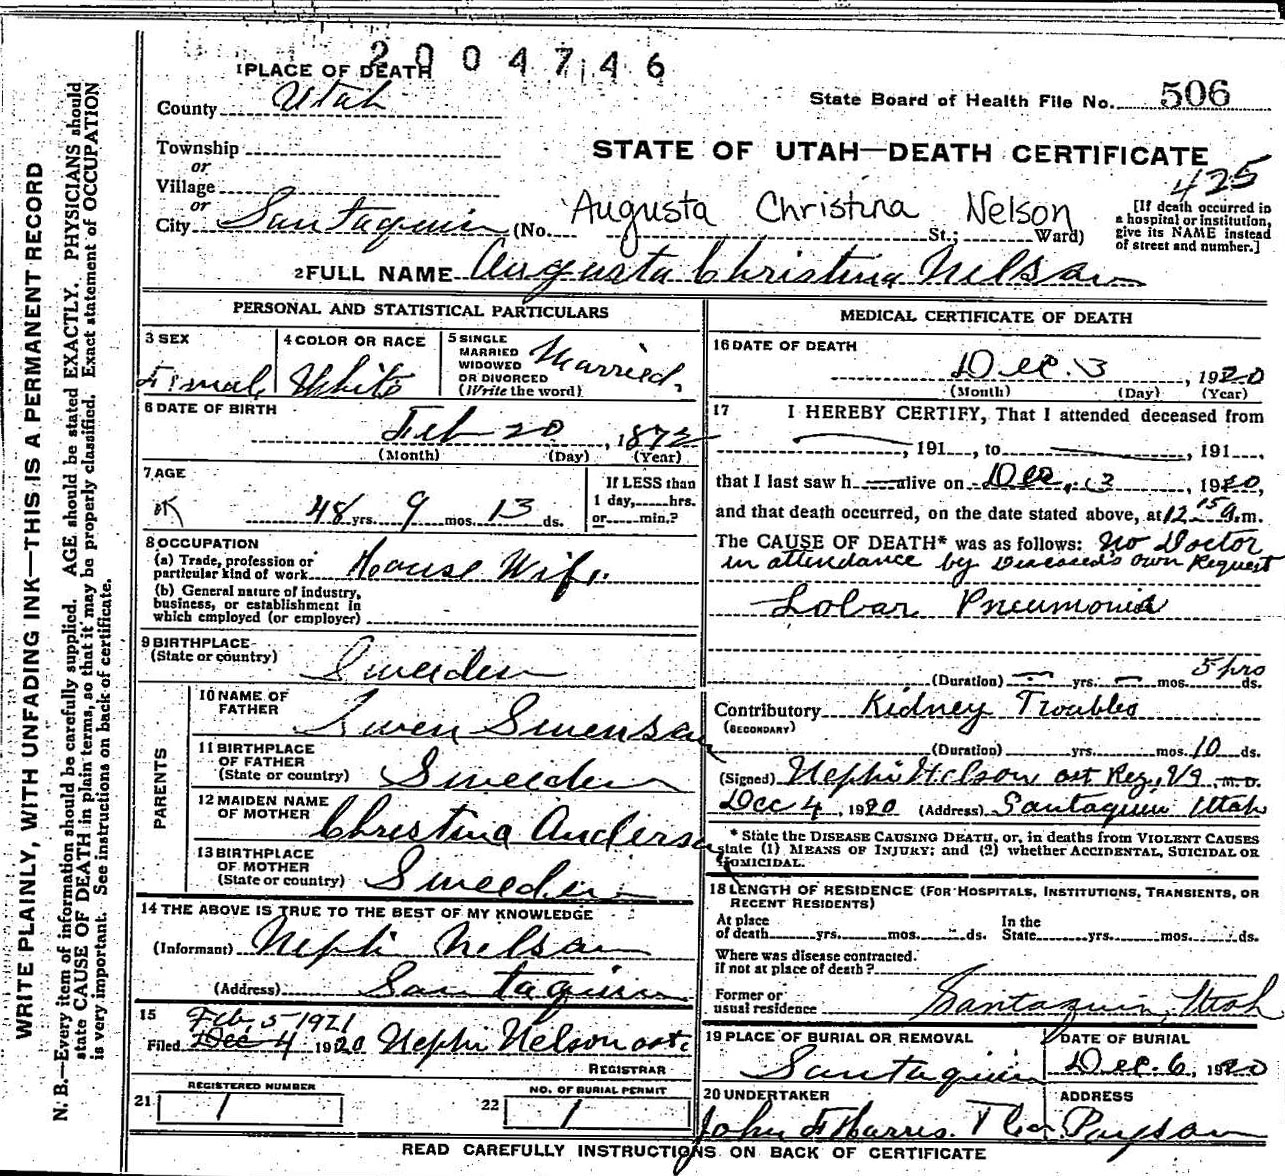 2004746
1 PLACE OF DEATH
County Utah
State Board of Health File No. 506
Township
or
Village
or
STATE OF UTAH—DEATH CERTIFICATE
425
City Santaquin (No. St.; Ward)
Augusta Christina Nelson
[If death occurred in
a hospital or institution,
give its NAME instead
of street and number.]
2 FULL NAME Augusta Christina Nelson
PERSONAL AND STATISTICAL PARTICULARS
3 SEX
Female
4 COLOR OR RACE
White
5 SINGLE
MARRIED
WIDOWED
OR DIVORCED
(Write the word)
Married.
6 DATE OF BIRTH
Feb 20, 1872
(Month) (Day) (Year)
7 AGE
OK
48 yrs. 9 mos. 13 ds.
If LESS than
1 day, hrs.
or min.?
8 OCCUPATION
(a) Trade, profession or
particular kind of work House Wife.
(b) General nature of industry,
business, or establishment in
which employed (or employer)
9 BIRTHPLACE
(State or country) Sweeden
PARENTS
10 NAME OF
FATHER
Swen Swenson
11 BIRTHPLACE
OF FATHER
(State or country) Sweeden
12 MAIDEN NAME
OF MOTHER
Christina Anderson
13 BIRTHPLACE
OF MOTHER
(State or country) Sweeden
14 THE ABOVE IS TRUE TO THE BEST OF MY KNOWLEDGE
(Informant) Nephi Nelson
(Address) Santaquin
15
Feb, 5 1921
Filed Dec 4 1920 Nephi Nelson
REGISTRAR
REGISTERED NUMBER
21 1
NO. OF BURIAL PERMIT
22 1
MEDICAL CERTIFICATE OF DEATH
16 DATE OF DEATH
Dec. 3, 1920
(Month) (Day) (Year)
17 I HEREBY CERTIFY, That I attended deceased from
, 191 , to , 191 ,
that I last saw h alive on Dec, 3, 1920,
and that death occurred, on the date stated above, at 12 15 a.m.
The CAUSE OF DEATH* was as follows: No Doctor
in attendance by Deceased's own Request
Lobar Pneumonia
5
(Duration) yrs. mos. ds.
Contributory Kidney Troubles
(SECONDARY)
(Duration) yrs. mos. 10 ds.
(Signed) Nephi Nelson Reg, M.D.
Dec 4, 1920 (Address) Santaquin Utah
* State the DISEASE CAUSING DEATH, or, in deaths from VIOLENT CAUSES
state (1) MEANS OF INJURY; and (2) whether ACCIDENTAL, SUICIDAL OR
HOMICIDAL.
18 LENGTH OF RESIDENCE (FOR HOSPITALS, INSTITUTIONS, TRANSIENTS, OR
RECENT RESIDENTS)
At place
of death yrs. mos. ds.
In the
State yrs. mos. ds.
Where was disease contracted.
if not at place of death?
Former or
usual residence Santaquin, Utah
19 PLACE OF BURIAL OR REMOVAL
Santaquin
DATE OF BURIAL
Dec. 6, 1920
20 UNDERTAKER
John F Harris.
ADDRESS
Payson
READ CAREFULLY INSTRUCTIONS ON BACK OF CERTIFICATE
WRITE PLAINLY, WITH UNFADING INK—THIS IS A PERMANENT RECORD
N. B.—Every item of information should be carefully supplied. AGE should be stated EXACTLY. PHYSICIANS should
state CAUSE OF DEATH in plain terms, so that it may be properly classified. Exact statement of OCCUPATION
is very important. See instructions on back of certificate.